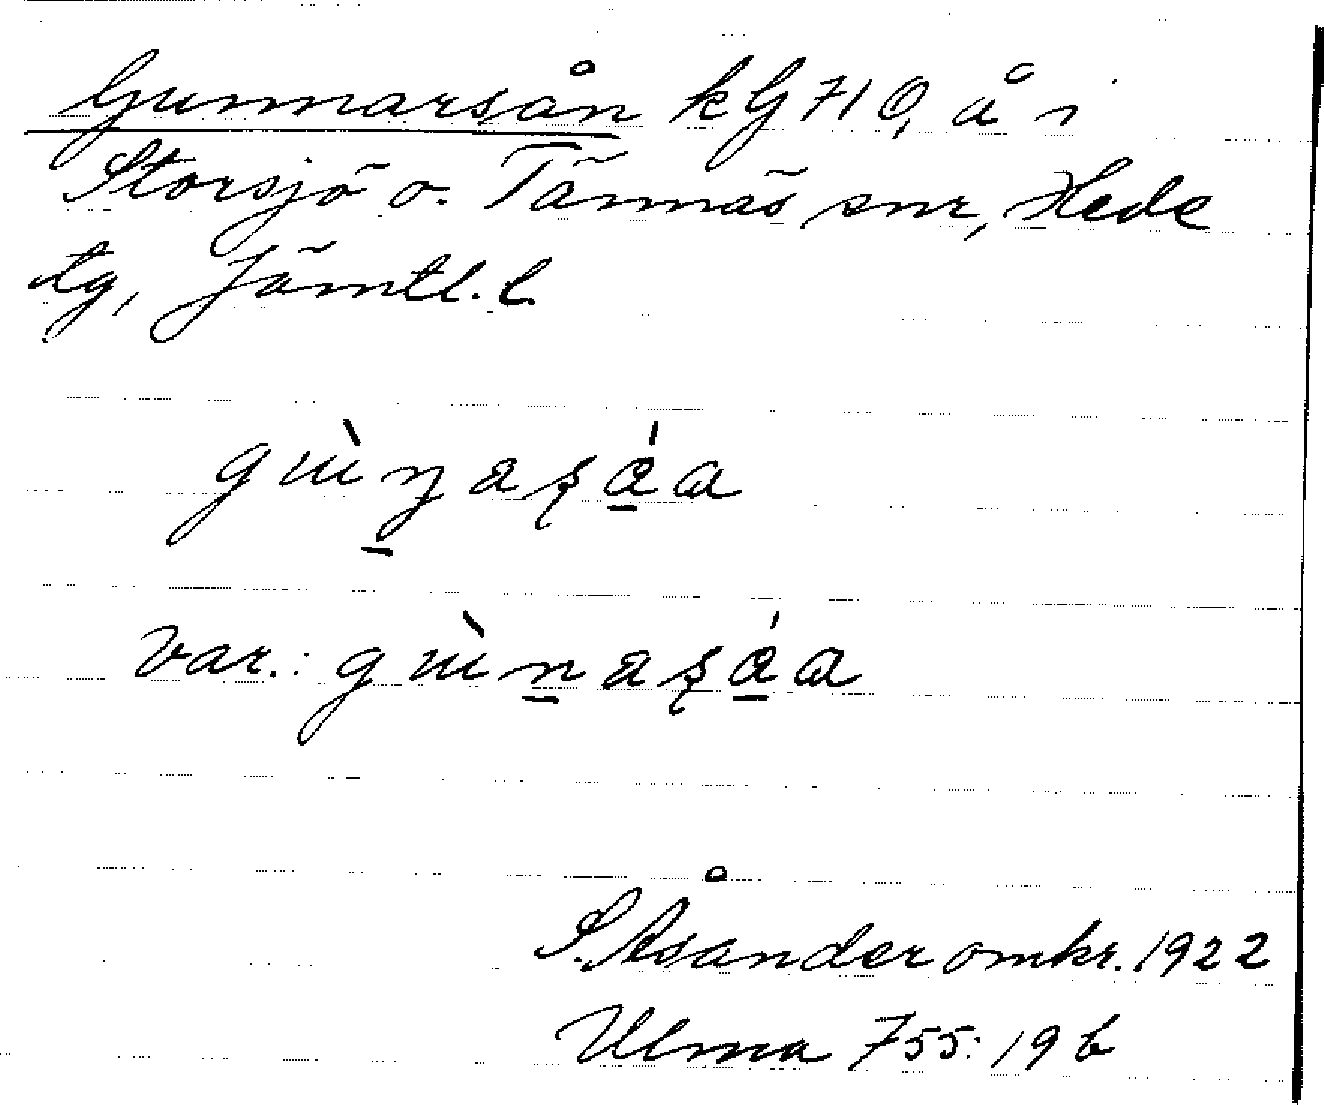 Gunnarsån kG 710, å i
Storsjö o. Tännäs snr, Hede
tg, Jämtl. l.
var.:
S. Åsander omkr. 1922
Ulma 755:19 b